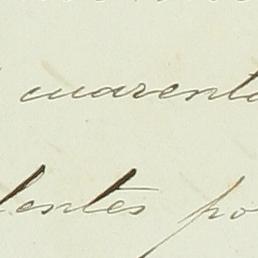 cuarenta
lentes po